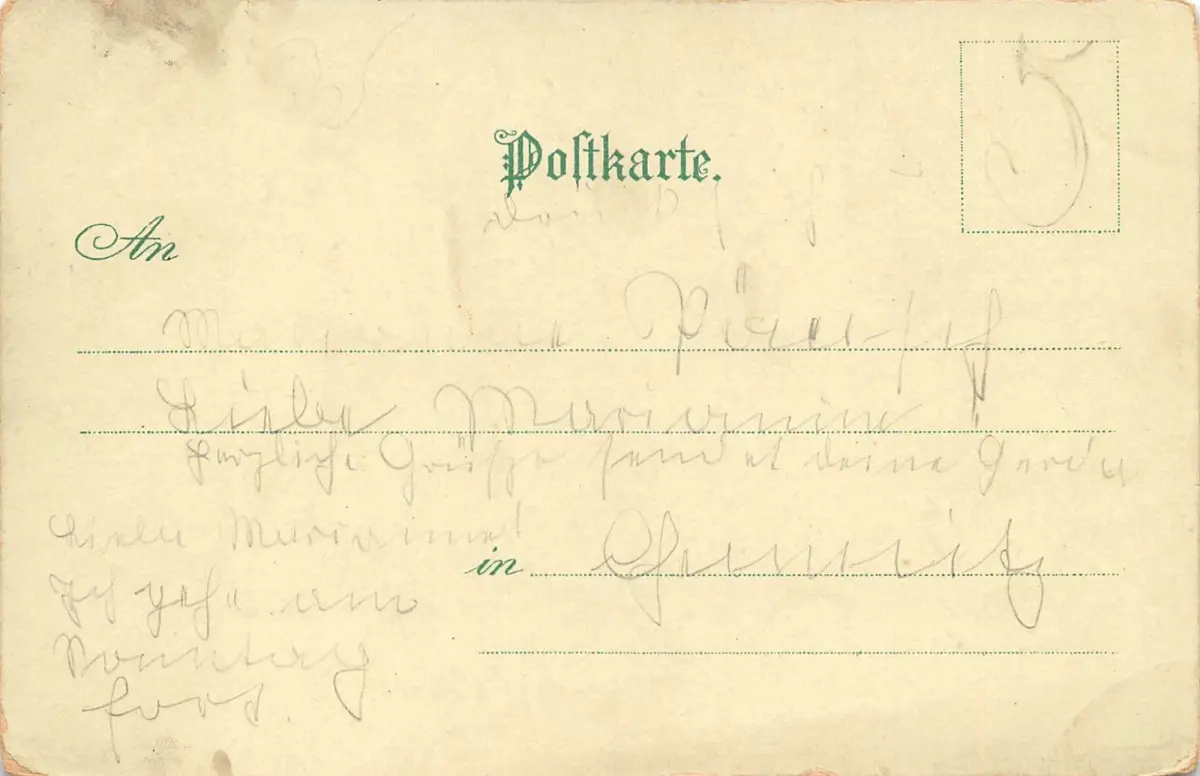 Postkarte.
5
An
Marianne
Liebe Marianne!
herzliche Grüsze sendet deine Gerda
Liebe Marianne!
in Chemnitz
Ich gehe am
Sonntag
fort.